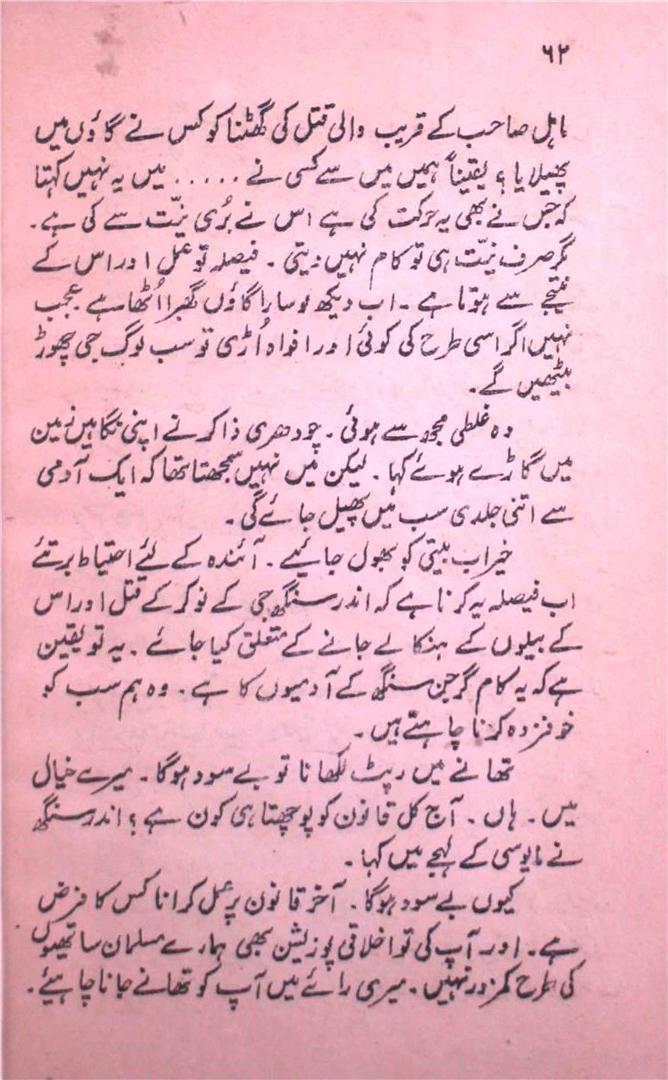 ۶۲
باہل صاحب کے قریب والی قتل کی گھٹنا کو کس نے گاؤں میں
پھیلایا؟ یقیناً ہمیں میں سے کسی نے ..... میں یہ نہیں کہتا
کہ جس نے بھی یہ حرکت کی ہے اس نے بُری نیّت سے کی ہے۔
مگر صرف نیّت ہی تو کام نہیں دیتی ۔ فیصلہ تو عمل اور اس کے
نتیجے سے ہوتا ہے ۔ اب دیکھ لو سارا گاؤں گھبرا اُٹھا ہے عجب
نہیں اگر اسی طرح کی کوئی اور افواہ اُڑی تو سب لوگ جی چھوڑ
بیٹھیں گے۔
وہ غلطی مجھ سے ہوئی ۔ چودھری ذاکر نے اپنی نگاہیں زمین
میں گاڑے ہوئے کہا ۔ لیکن میں نہیں سمجھتا تھا کہ ایک آدمی
سے اتنی جلدی سب میں پھیل جائے گی ۔
خیر اب بیتی کو بھول جائیے ۔ آئندہ کے لئے احتیاط برتئے
اب فیصلہ یہ کرنا ہے کہ اندر سنگھ جی کے نوکر کے قتل اور اس
کے بیلوں کے ہنکالے جانے کے متعلق کیا جائے ۔ یہ تو یقین
ہے کہ یہ کام گرجن سنگھ کے آدمیوں کا ہے ۔ وہ ہم سب کو
خوفزدہ کرنا چاہتے ہیں ۔
تھانے میں رپٹ لکھانا تو بے سود ہوگا ۔ میرے خیال
میں ۔ ہاں ۔ آج کل قانون کو پوچھتا ہی کون ہے؟ اندر سنگھ
نے مایوسی کے لہجے میں کہا ۔
کیوں بے سود ہوگا ۔ آخر قانون پر عمل کرانا کس کا فرض
ہے ۔ اور آپ کی تو اخلاقی پوزیشن بھی ہمارے مسلمان ساتھیوں
کی طرح کمزور نہیں ۔ میری رائے میں آپ کو تھانے جانا چاہیئے ۔